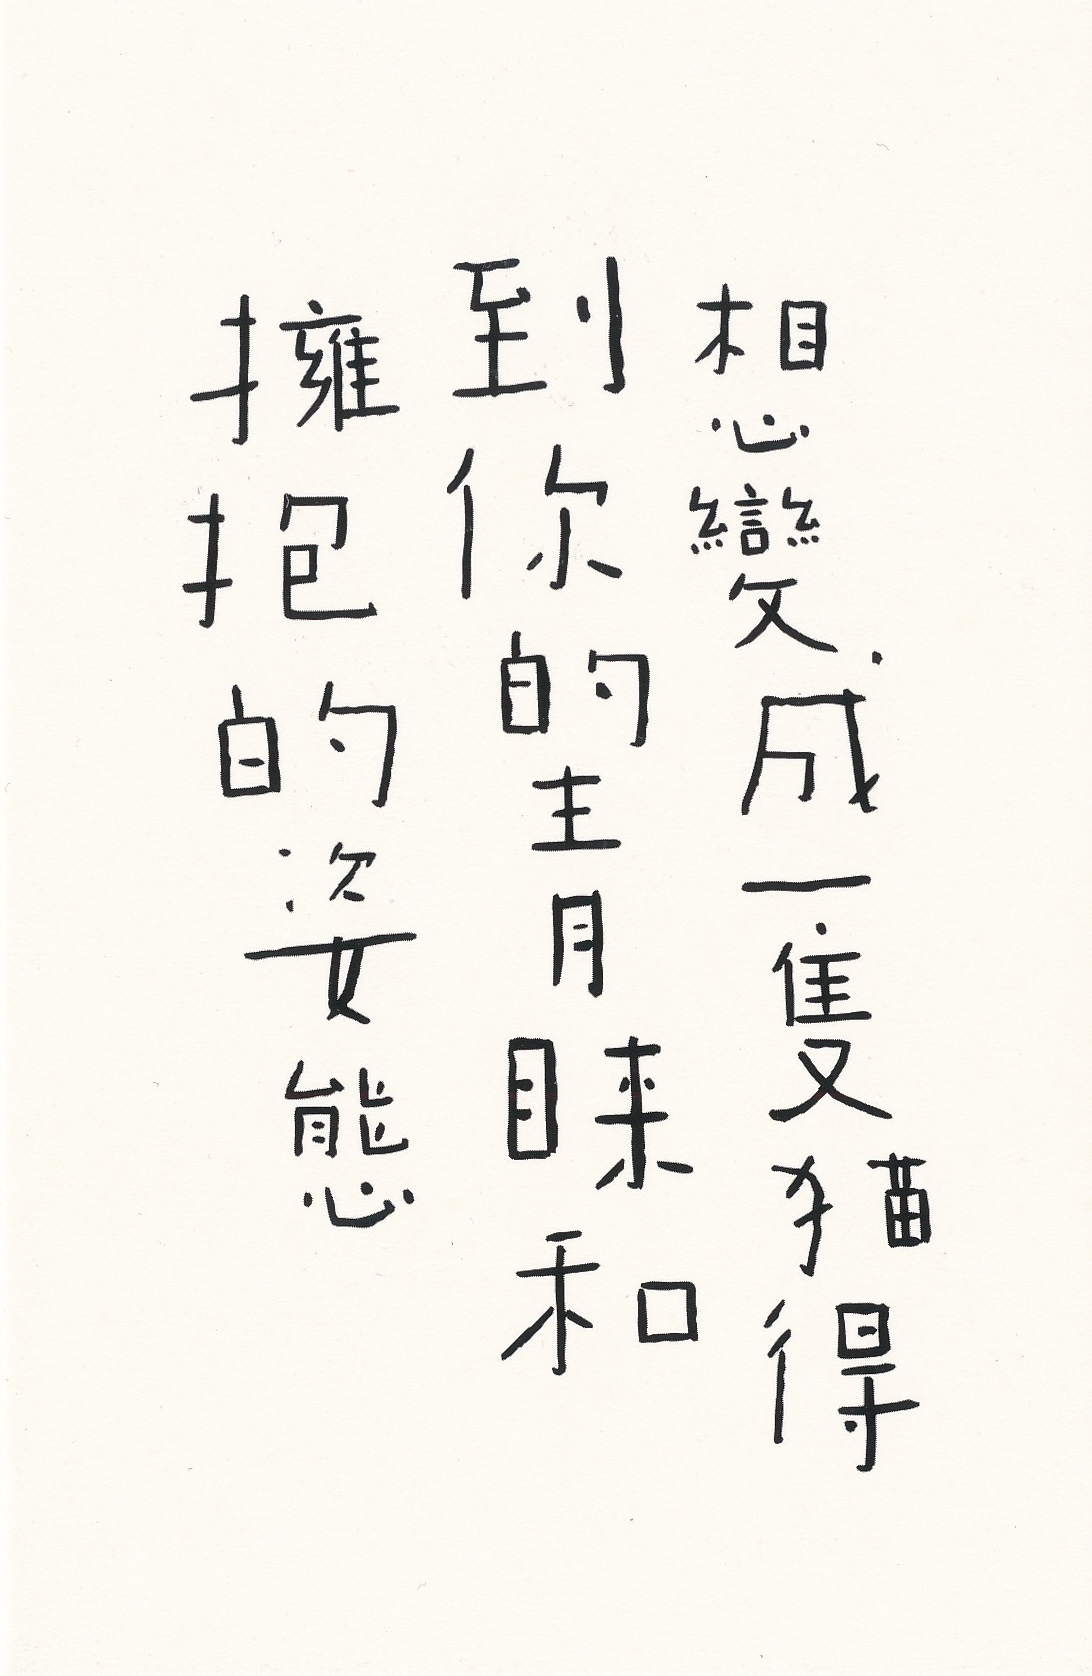 想變成一隻猫得
到你的青睞和
擁抱的姿態